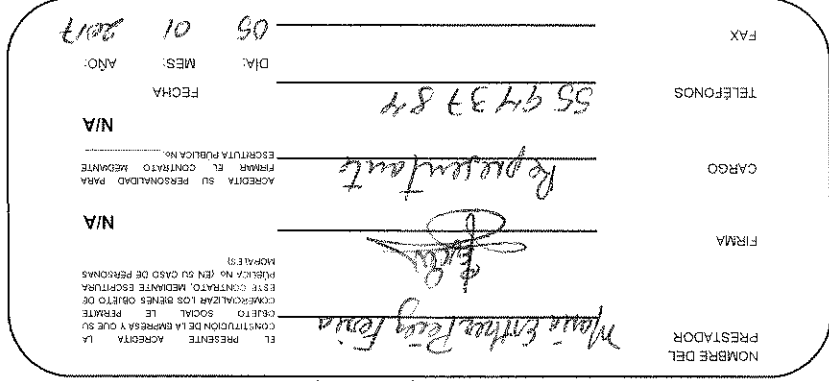 NOMBRE DEL PRESTADOR
María Esther Feria
EL PRESENTE ACREDITA LA
CONSTITUCIÓN DE LA EMPRESA Y QUE SU
OBJETO SOCIAL LE PERMITE
COMERCIALIZAR LOS BIENES OBJETO DE
ESTE CONTRATO, MEDIANTE ESCRITURA
PÚBLICA No. (EN SU CASO DE PERSONAS
MORALES)
N/A
FIRMA
CARGO
Representante
ACREDITA SU PERSONALIDAD PARA
FIRMAR EL CONTRATO MEDIANTE
ESCRITUTA PÚBLICA No.
N/A
TELÉFONOS
55943784
FECHA
DÍA: MES: AÑO:
05 01 2017
FAX